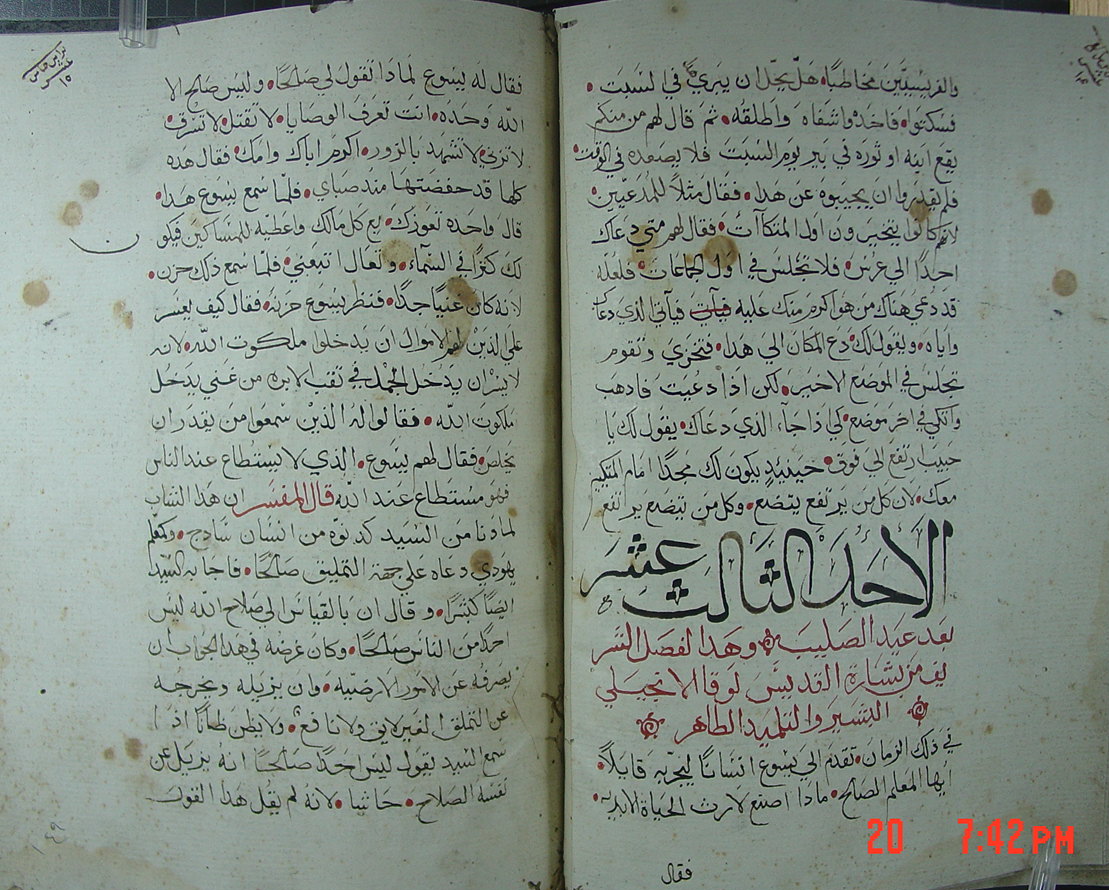 والفريسيين مخاطبًا هل يحل ان يبري في السبت
فسكتوا فاخذه واشفاه واطلقه ثم قال لهم من منكم
يقع ابنه او ثوره في بير يوم السبت فلا يصعده في الوقت
فلم يقدروا ان يجيبوه عن هذا فقال مثلًا للمدعيين
لانهم كانوا يتخيرون اول المتكآت فقال لهم متي دعاك
احدًا الي عرس فلا تجلس في اول الجماعات فلعله
قد دعي هناك من هو اكرم منك عليه فيآتي الذي دعاك
واياه ويقول لك دع المكان الي هذا فتخزي وتقوم
تجلس في الموضع الاخير لكن اذا دعيت فادهب
واتكي في اخر موضع كي اذا جآء الذي دعاك يقول لك يا
حبيب ارتفع الي فوق حينيدٍ يكون لك مجدًا امام المتكيين
معك لان كل من يرتفع يتضع وكل من يتضع يرتفع
الاحد الثالث عشر
بعد عيد الصليب وهذا الفصل الشر
يف من بشارة القديس لوقا الانجيلي
البشير والتلميد الطاهر
في ذلك الزمان تقدم الي يسوع انسانًا ليجربه قايلًا
ايها المعلم الصالح ماذا اصنع لارث الحياة الابديه
فقال
فقال له يسوع لماذا تقول لي صالحًا وليس صالح الا
الله وحده انت تعرف الوصايا لا تقتل لا تسرق
لا تزني لا تشهد بالزور اكرم اباك وامك فقال هده
كلها قد حفضتها مند صباي فلما سمع يسوع هدا
قال واحده تعوزك بع كل مالك واعطيه للمساكين فيكو
لك كنزًا في السمآء وتعال اتبعني فلما سمع ذلك حزن
لانه كان غنيًا جدًا فنظر يسوع حزنه فقال كيف يعسر
علي الذين لهم الاموال ان يدخلوا ملكوت الله لانه
لايسر ان يدخل الجمل في ثقب الابره من غني يدخل
ملكوت الله فقالوا له الذين سمعوا من يقدر ان
يخلص فقال لهم يسوع الذي لا يستطاع عند الناس
فهو مستطاع عند الله قال المفسر ان هذا الشاب
لما دنا من السيد كدنوه من انسان سادج وكمعلم
يهودي دعاه علي جهة التمليق صالحًا فاجابه السيد
ايضًا كبشرًا وقال ان بالقياس الي صلاح الله ليس
احدًا من الناس صالحًا وكان غرضه في هذا الجواب ان
يصرفه عن الامور الارضيه وان يزيله ويخرجه
عن التملق الغير لايق ولا نافع ولا يظن ظانًا اذا
سمع السيد يقول ليس احدًا صالحًا انه يزيل عن
نفسه الصلاح حاشا لانه لم يقل هدا القول